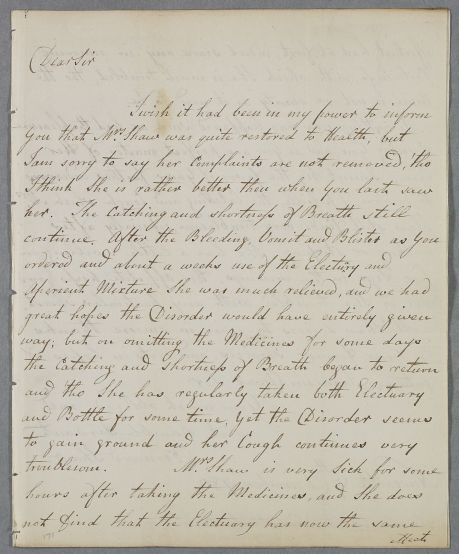 Dear Sir
I wish it had been in my power to inform
you that Mrs Shaw was quite restored to Health, but
I am sorry to say her Complaints are not removed, tho
I think She is rather better then when you last saw
her. The Catching and shortness of Breath still
continue. After the Bleeding, Vomit and Blister as you
ordered and about a weeks use of the Electury and
Aperient Mixture She was much relieved, and we had
great hopes the Disorder would have entirely given
way; but on omitting the Medicines for some days
the Catching and Shortness of Breath began to return
and tho She has regularly taken both Electuary
and Bottle for some time, yet the Disorder seems
to gain ground and her Cough continues very
troublesom. Mrs Shaw is very Sick for some
hours after taking the Medicines, and She does
not find that the Electuary has now the same
effect